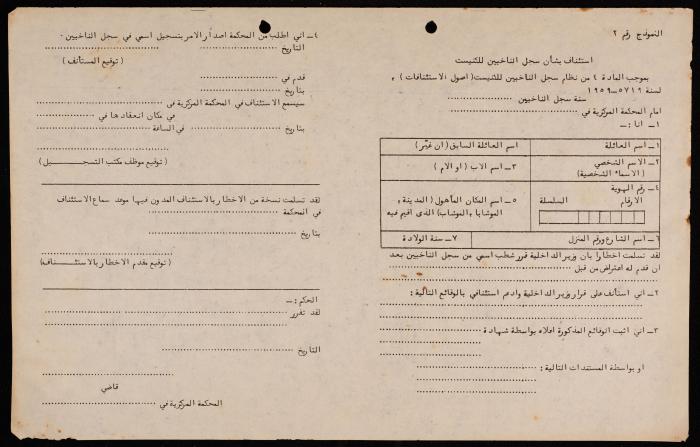 النموذج رقم ٢
استئناف بشأن سجل الناخبين للكنيست
بموجب المادة ٤ من نظام سجل الناخبين للكنيست (اصول الاستئنافات) ،
لسنة ٥٧١٩-١٩٥٩
سنة سجل الناخبين
امام المحكمة المركزية في
١- انا :-
١- اسم العائلة
اسم العائلة السابق (ان غيّر)
٢- الاسم الشخصي
(الاسماء الشخصية)
٣- اسم الاب (او الام)
٤- رقم الهوية
الارقام السلسلة
٥- اسم المكان المأهول (المدينة،
الموشابا، الموشاب) الذي اقيم فيه
٦- اسم الشارع ورقم المنزل
٧- سنة الولادة
لقد تسلمت اخطارا بان وزير الداخلية قرر شطب اسمي من سجل الناخبين بعد
ان قدم له اعتراض من قبل
٢- اني استأنف على قرار وزير الداخلية وادعم استئنافي بالوقائع التالية :
٣- اني اثبت الوقائع المذكورة اعلاه بواسطة شهادة
او بواسطة المستندات التالية :
٤- اني اطلب من المحكمة اصدار الامر بتسجيل اسمي في سجل الناخبين .
التاريخ
(توقيع المستأنف)
قدم في
بتاريخ
سيسمع الاستئناف في المحكمة المركزية في
في مكان انعقادها في
بتاريخ في الساعة
(توقيع موظف مكتب التسجيل)
لقد تسلمت نسخة من الاخطار بالاستئناف المدون فيها موعد سماع الاستئناف
في المحكمة
بتاريخ
(توقيع مقدم الاخطار بالاستئناف)
الحكم :-
لقد تقرر
التاريخ
قاضي
المحكمة المركزية في